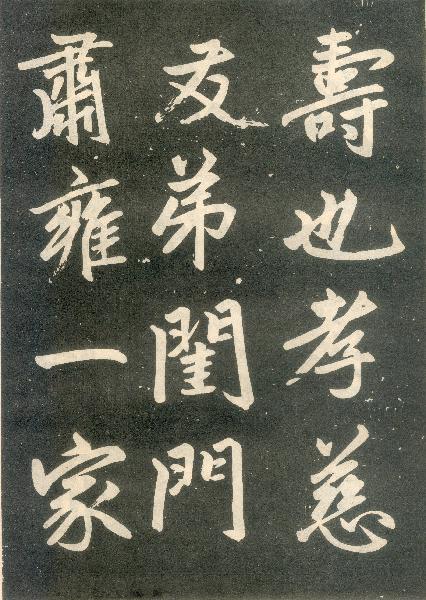 壽也孝慈
友弟閨門
肅雍一家